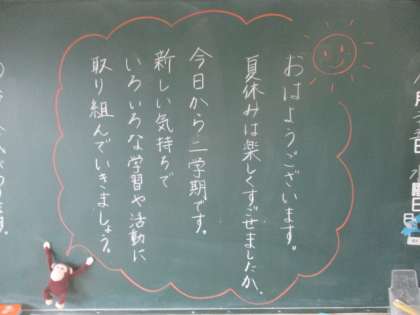 おはようございます。
夏休みは楽しくすごせましたか。
今日から二学期です。
新しい気持ちで
いろいろな学習や活動に
取り組んでいきましょう。